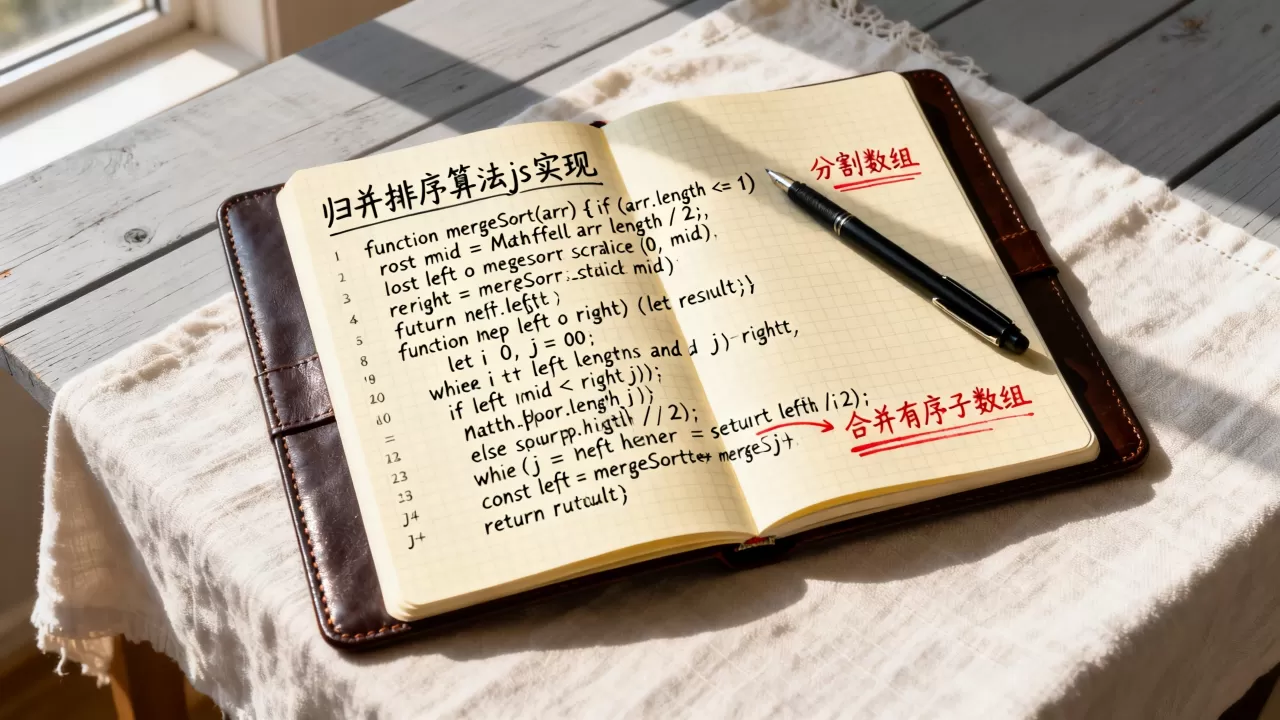 归并排序算法js实现
1 function mergeSort(arr) { if (arr.length <= 1)
2 rost mid = Mathffell arr length / 2;,
3 lost left o megesorr scraice (0, mid).
4 reright = mereSorr:.staick mid)
5 futurn neff.leftt ;
8 function mep left o right) (let result;}}
19 let i 0, j = 00;
20 whiee i tt left lengtns and d j)-rightt,
40 if left imid < right j));
= natth.ploor.length j));
12 else sourpp.higtlt //2);
23 whie (j = neft hener = seturt lefth /i2);
13 const left = mergeSortte+ mergeSj+
j4 return rutault}
j+
分割数组
合并有序子数组